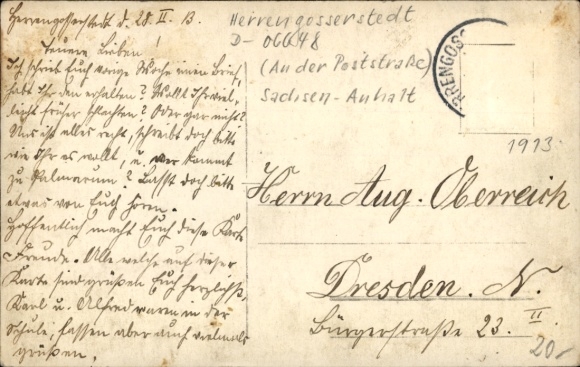 Herrengosserstedt d. 28. II. 13.
Teuere Lieben!
Ich schrieb Euch vorige Woche einen Brief,
habt Ihr den erhalten? Wollt Ihr viel-
leicht früher schlachten? Oder gar nicht?
Uns ist alles recht, schreibt doch bitte
wie Ihr es wollt, u. wer kommt
zu Palmarum? Lasst doch bitte
etwas von Euch hören.
Hoffentlich macht Euch diese Karte
Freude. Alle welche auf dieser
Karte sind grüßen Euch herzlichst.
Karl u. Alfred waren in der
Schule, lassen aber auch vielmals
grüßen.
Herrengosserstedt
D- 06648
(An der Poststraße)
Sachsen-Anhalt
RRENGOS
1913
Herrn Aug. Oberreich
Dresden. N.
Bürgerstraße 23. II
20.-